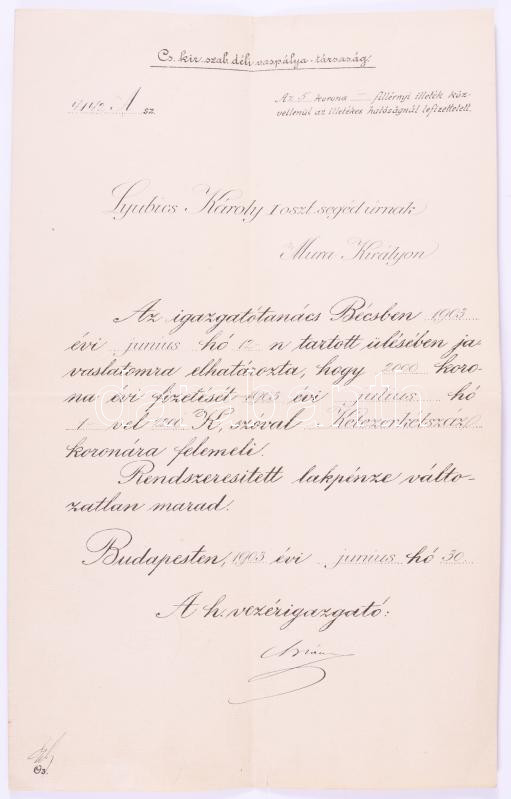 Cs. kir. szab. déli vaspálya-társaság.
A sz.
Az 5 korona — fillérnyi illeték köz-
vetlenül az illetékes hatóságnál lefizettetett.
Lyubics Károly I oszt. segéd úrnak
Mura Királyon
Az igazgatótanács Bécsben 1903
évi junius hó 12-n tartott ülésében ja-
vaslatomra elhatározta, hogy 2000 koro-
na évi fizetését 1903 évi július hó
1-vel 2200 K, szóval Kétezerkétszáz
koronára felemeli.
Rendszeresített lakpénzeválto-
zatlan marad.
Budapesten, 1903 évi junius hó 30
A h. vezérigazgató: